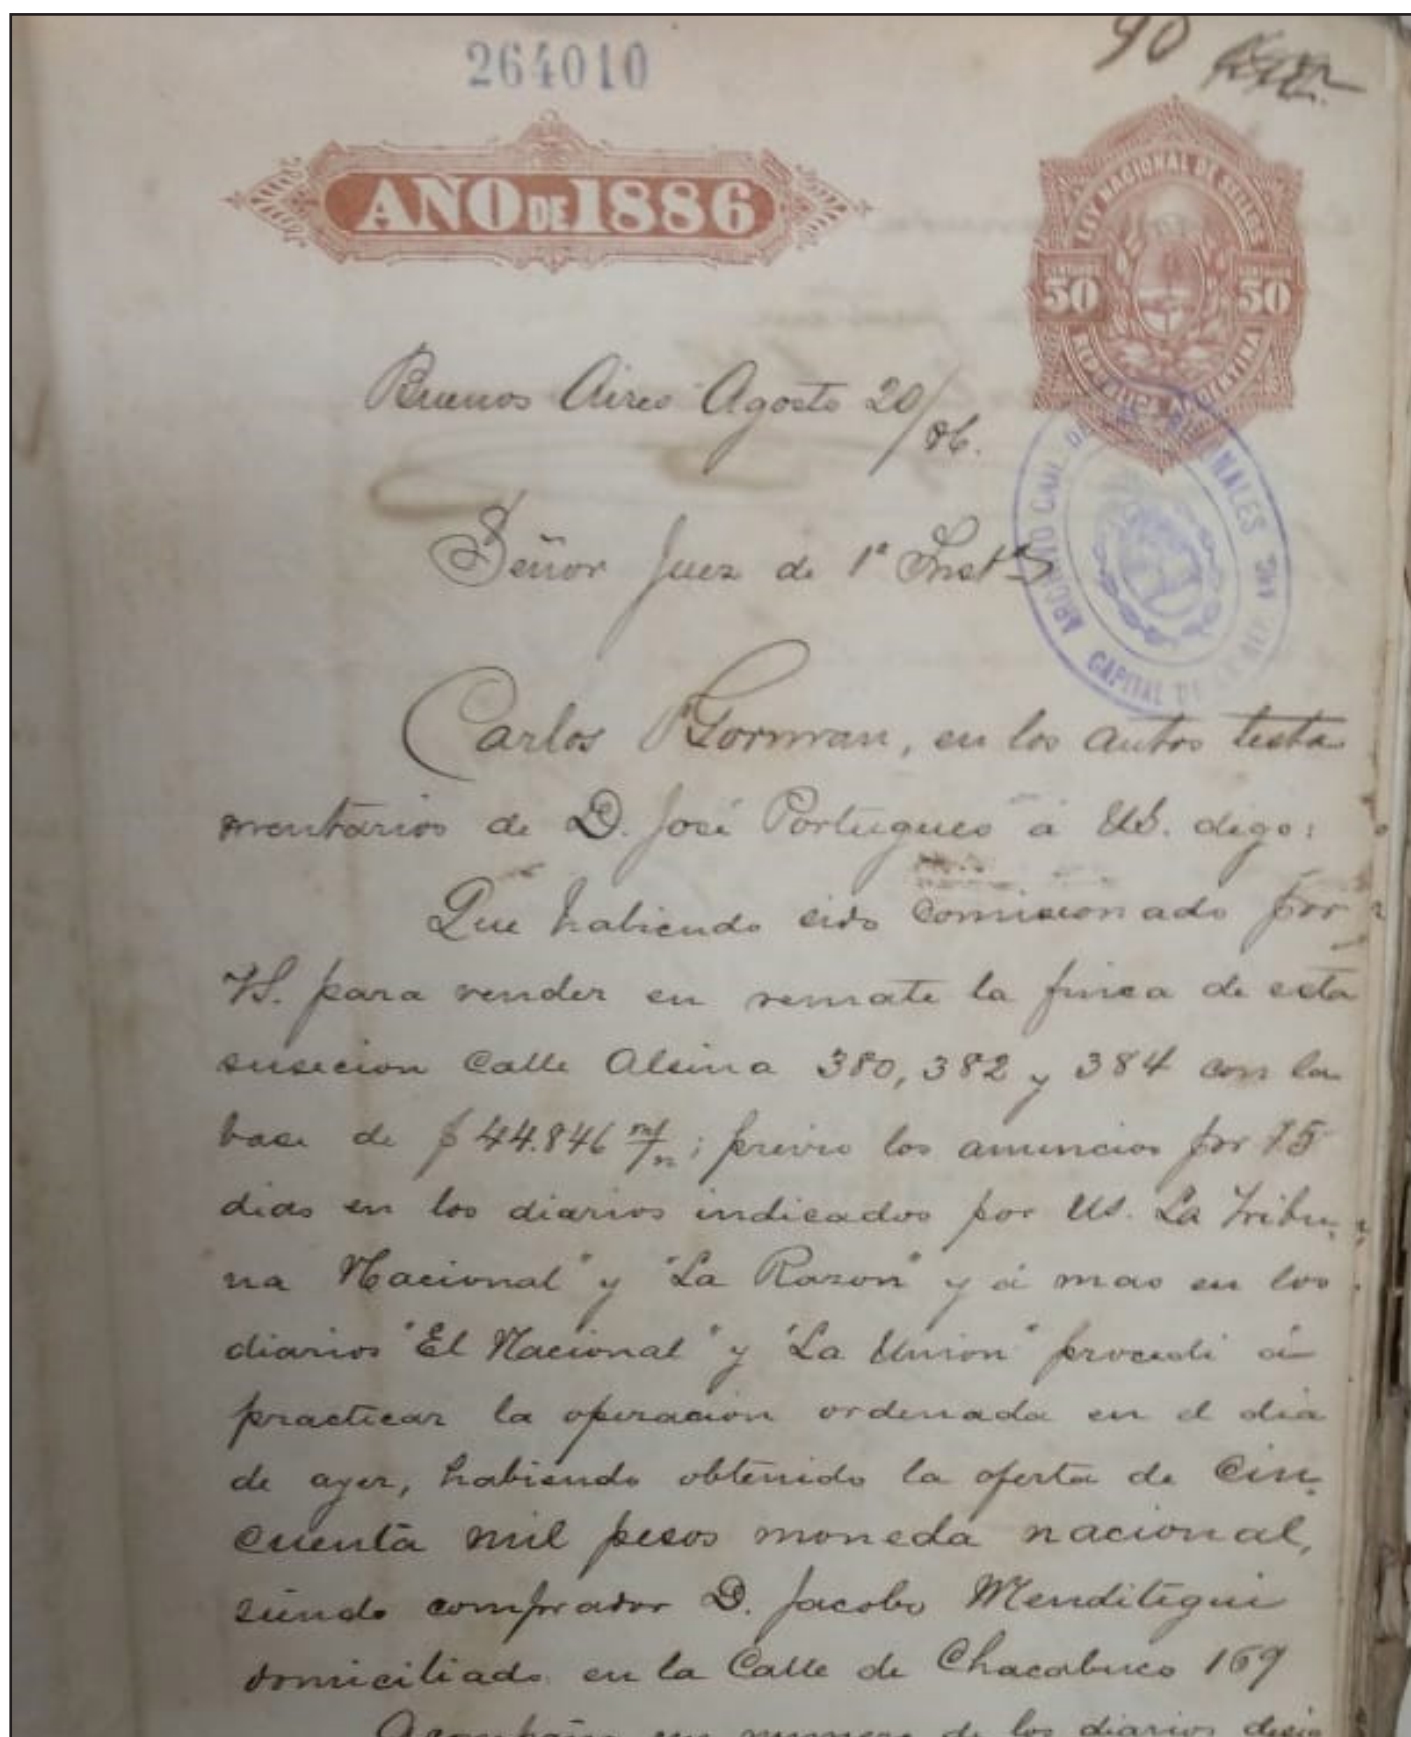 264010
90
AÑO DE 1886
LEY NACIONAL DE SELLOS
CENTAVOS 50 CENTAVOS 50
REPUBLICA ARGENTINA
Buenos Aires Agosto 20/86.
ARCHIVO GRAL. DE NALES
CAPITAL DE LA REP.
Señor Juez de 1ª Inst.ª
Carlos Gorman, en los autos testa
mentarios de D. José Portugues á US. digo:
Que habiendo sido comisionado por
VS. para vender en remate la finca de esta
susecion Calle Alsina 380, 382 y 384 con la
base de $ 44.846 m/n; previo los anuncios por 15
dias en los diarios indicados por US. La Tribu-
na Nacional" y "La Razon" y á mas en los
diarios "El Nacional" y "La Union" procedi á
practicar la operacion ordenada en el dia
de ayer, habiendo obtenido la oferta de Cin-
cuenta mil pesos moneda nacional,
siendo comprador D. Jacobo Menditegui
domiciliado en la Calle de Chacabuco 169
de los diarios